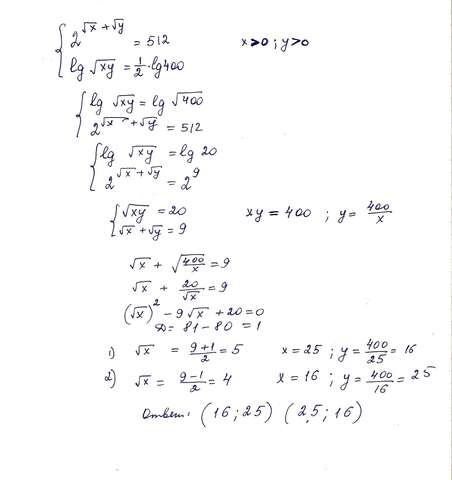 { 2^(√x + √y) = 512    x>0 ; y>0
lg √xy = 1/2 · lg 400
{ lg √xy = lg √400
2^(√x + √y) = 512
{ lg √xy = lg 20
2^(√x + √y) = 2^9
{ √xy = 20    xy = 400 ; y = 400/x
√x + √y = 9
√x + √(400/x) = 9
√x + 20/√x = 9
(√x)^2 - 9√x + 20 = 0
D = 81 - 80 = 1
1) √x = (9+1)/2 = 5    x = 25 ; y = 400/25 = 16
2) √x = (9-1)/2 = 4    x = 16 ; y = 400/16 = 25
Ответ: (16 ; 25) (25 ; 16)